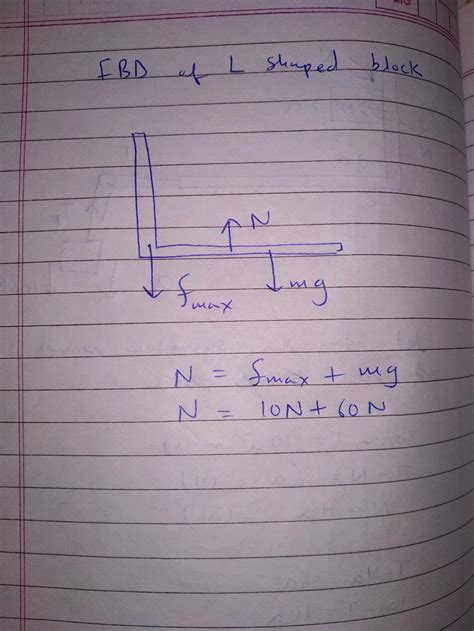 FBD of L shaped block
N
fmax
mg
N = fmax + mg
N = 10N + 60N